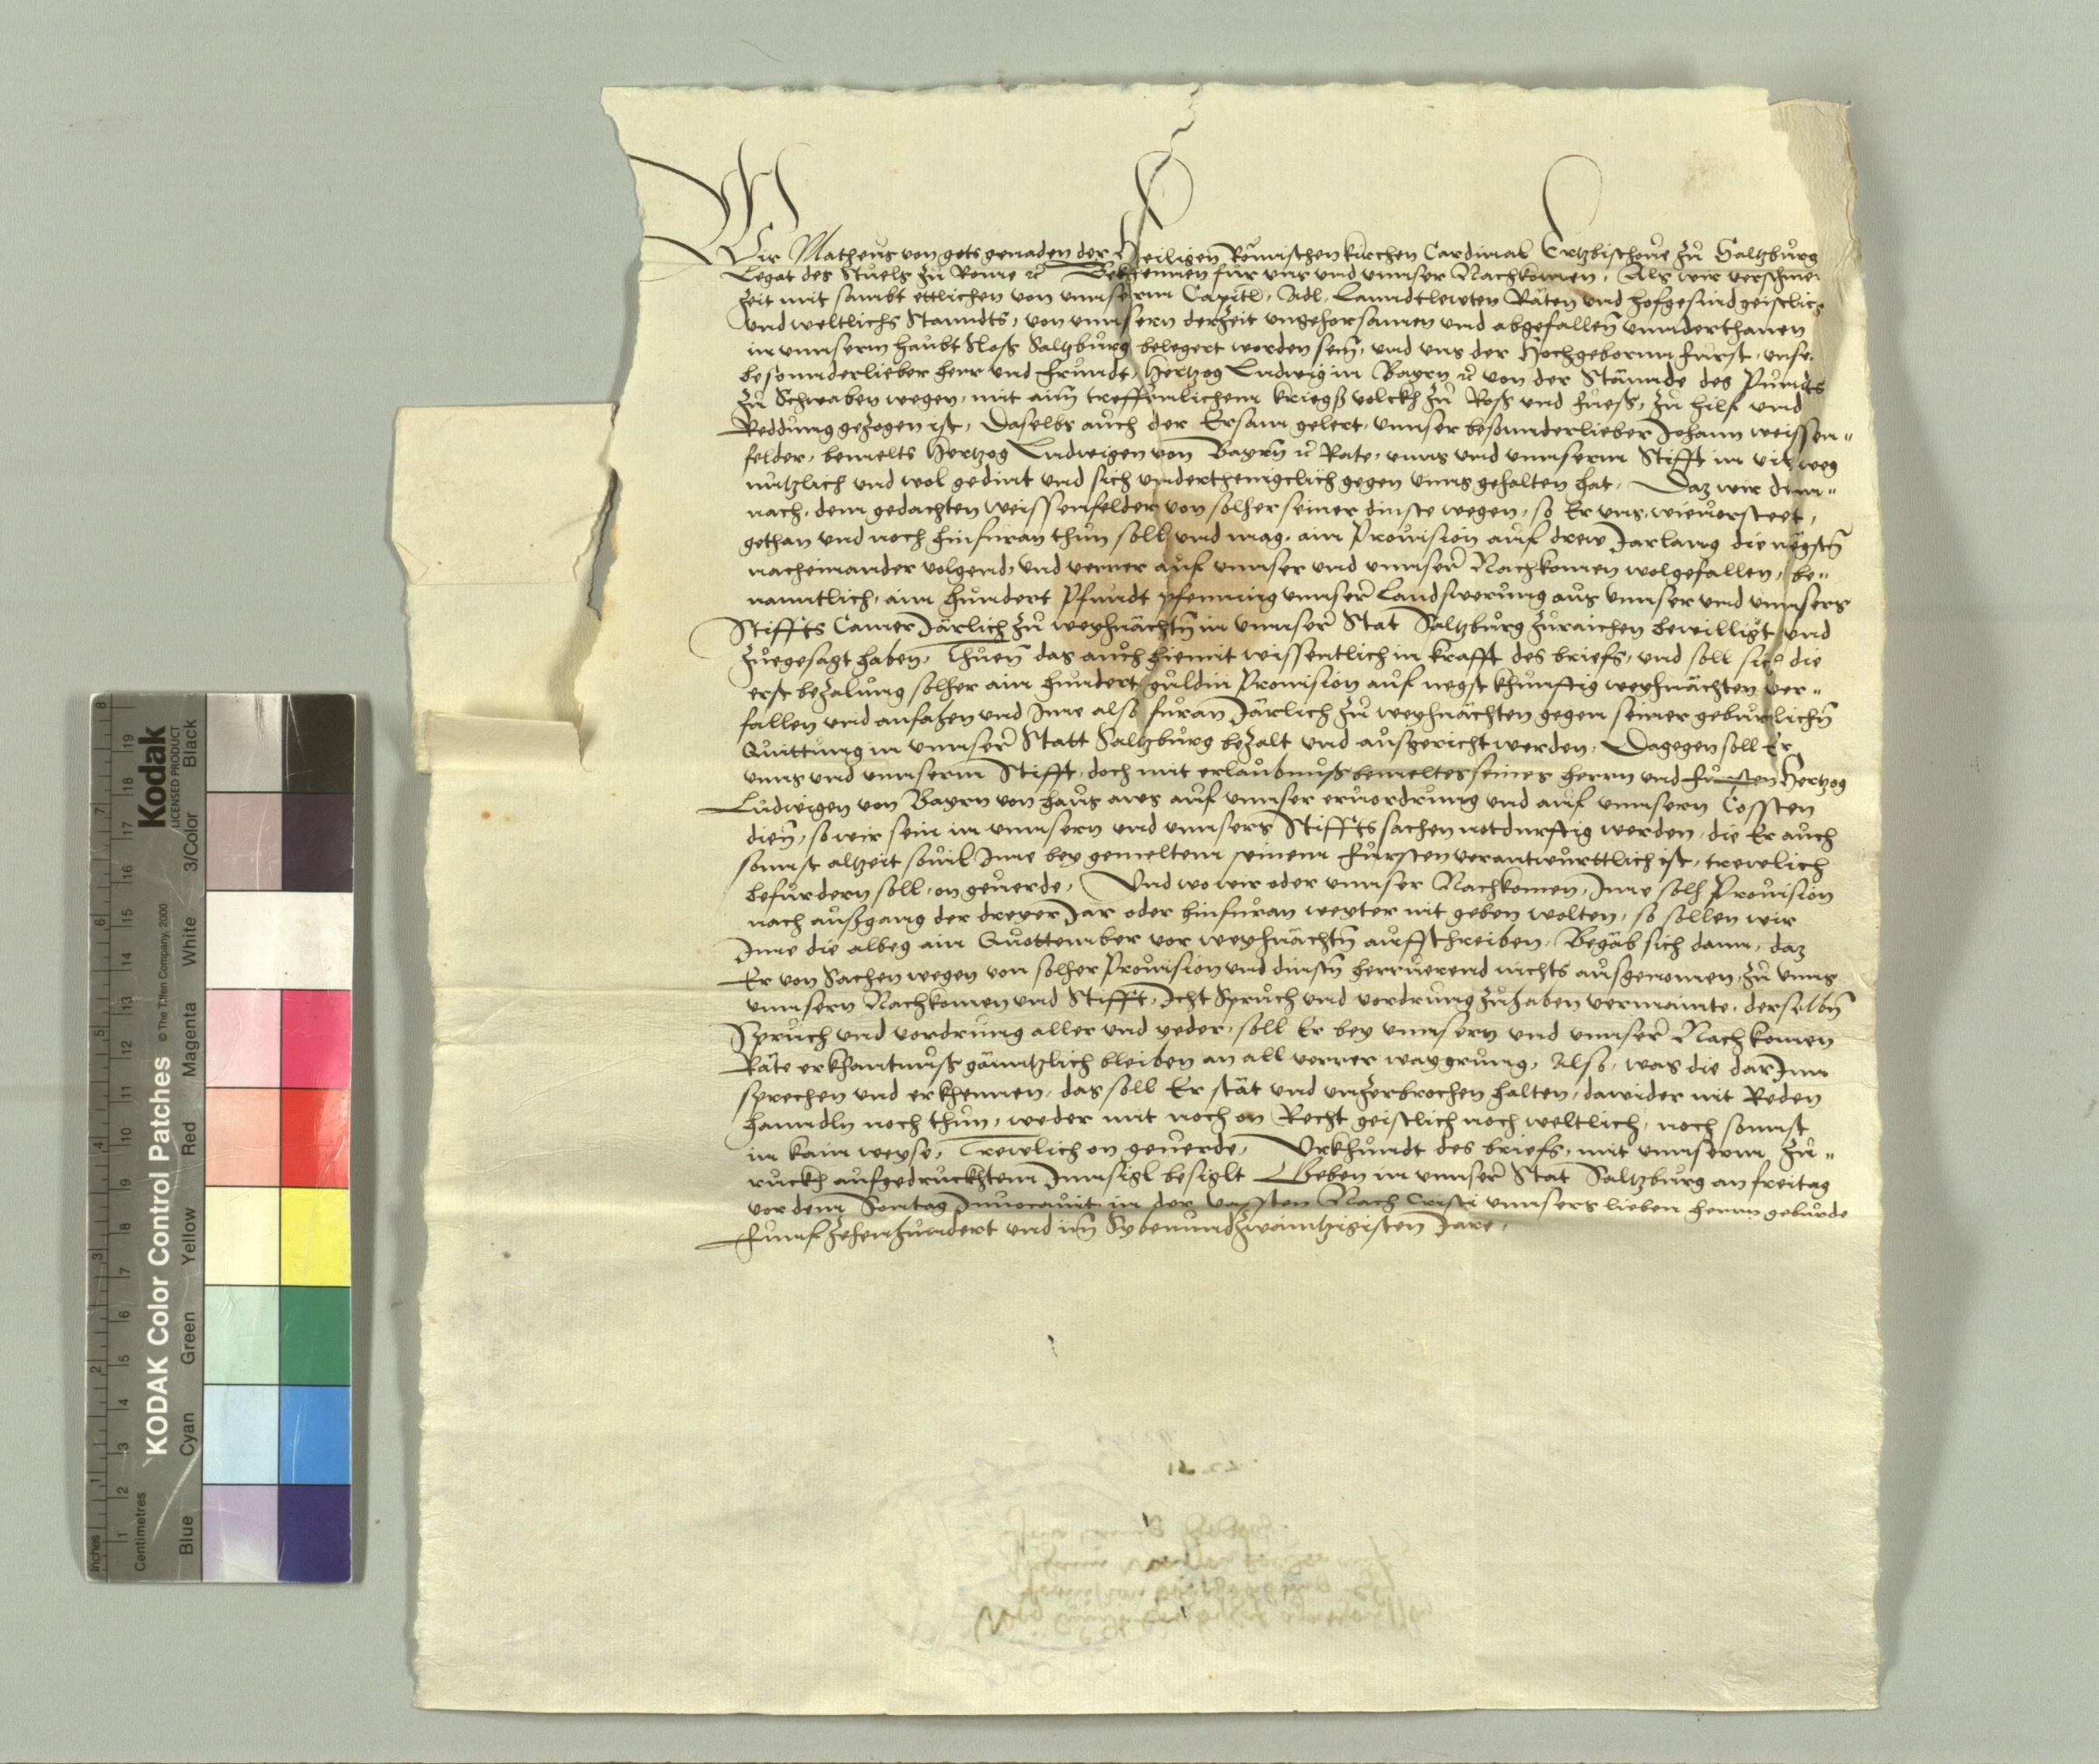 Wir Matheus von gots genaden der Heiligen Römischen kirchen Cardinal Ertzbischove zů Saltzburg
Legat des Stuels zu Rome ꝛc Bekhennen für uns und unnser Nachkomen, Als wir verschiner
Zeit mit sambt ettlichen von unnserm Capitl, Adl, Lanndtlewten Räten und hofgesind geistlichs
und weltlichs Stanndts, von unnsern derzeit ungehorsamen und abgefallen unnderthanen
in unnserm haubt Sloß Saltzburg belegert worden sein, und uns der Hochgeborm fürst, unser
besonnderlieber herr und frundt, Hertzog Ludwig in Bayrn ꝛc von der Stännde des Pundts
zů Schwaben wegen, mit ainem treffennlichem kriegß volckh zů Roß und fueß, zů hilf und
Reddung gezogen ist, Daselbs auch der Ersam gelert, unnser besonnderlieber Johann weissen„
felder, bemelts Hertzog Ludwigen von Bayrn ꝛc Rate, unns und unnserm Stifft in vil weg
nutzlich und wol gedint und sich underthenigclich gegen unns gehalten hat, Daz wir dem„
nach, dem gedachten weissenfelder von solher seiner dinste wegen, so Er uns, wievorsteet,
gethan und noch hinfüran thun soll und mag, ain Provision auf drew Jar lang die negsten
nacheinander volgend, und verrer auf unnser und unnser Nachkomen wolgefallen, be„
nanntlich, ain hundert Pfundt pfenning unnser Landßwerung aus unnser und unnsers
Stiffts Camer Järlich zů weyhnächtn in unnser Stat Saltzburg zuraichen bewilligt und
zuegesagt haben, Thuen das auch hiemit wissentlich in krafft des briefs, und soll sich die
erst bezalung solher ain hundert guldin Provision auf negst khunftig weyhnächten ver„
fallen und anfahen und Ime also füran Järlich zů weyhnächten gegen seiner geburlichn
Quittung in unnser Statt Saltzburg bezalt und außgericht werden, Dagegen soll Er
unns und unnserm Stifft, doch mit erlaubnuß bemeltes seines herrn und fürsten Hertzog
Ludwigen von Bayrn von haus aws auf unnser ervordrung und auf unnsern Cossten
dien, so wir sein in unnsern und unnsers Stiffts sachen notdurftig werden, die Er auch
sonnst altzeit sovil Ime bey gemeltem seinem fürsten verantwurttlich ist, trewlich
befürdern soll, on geverde, Und wo wir oder unnser Nachkomen, Ime solh Provision
nach außgang der dreyer Jar oder hinfüran weyter nit geben wolten, so sollen wir
Ime die albeg ain Quottember vor weyhnächtn aufschreiben, Begäb sich dann, daz
Er von Sachen wegen von solher Provision und dinstn herruerend nichts außgenomen, zů unns
unnsern Nachkomen und Stifft, Icht Spruch und vordrung zuhaben vermainte, derselbn
Spruch und vordrung aller und yeder, soll Er bey unnsern und unnser Nachkomen
Räte erkhantnuß gänntzlich bleiben an all verrer waygrung, Also, was die darJnn
sprechen und erkhennen, das soll Er stät und unzerbrochen halten, dawider nit Reden
hanndln noch thun, weder mit noch on Recht geistlich noch weltlich, noch sonnst
in kain weyse, Trewlich on geverde, Urkhundt des briefs, mit unnserm zu„
ruckh aufgedruckhtem Innsigl besiglt Geben in unnser Stat Saltzburg an freitag
vor dem Sontag Invocavit in der vassten Nach Cristi unnsers lieben herrn geburde
Funfzehenhundert und im Sybenundzwaintzigisten Jare,
KODAK Color Control Patches
Kodak
LICENSED PRODUCT
© The Tiffen Company, 2000
Blue Cyan Green Yellow Red Magenta White 3/Color Black
Inches 1 2 3 4 5 6 7 8
Centimetres 1 2 3 4 5 6 7 8 9 10 11 12 13 14 15 16 17 18 19